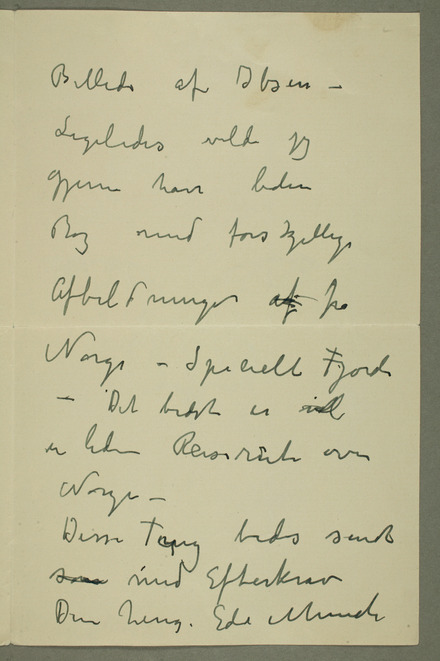 Billede af Ibsen –
Ligeledes vilde jeg
gjerne have liden
Bog med forskjellige
Afbildninger af fra
Norge – Specielt Fjorde
– Det bedste er
er liden Reiseroute over
Norge –
Disse Ting bedes sendt
som med Efterkrav
Din heng. Edv Munch